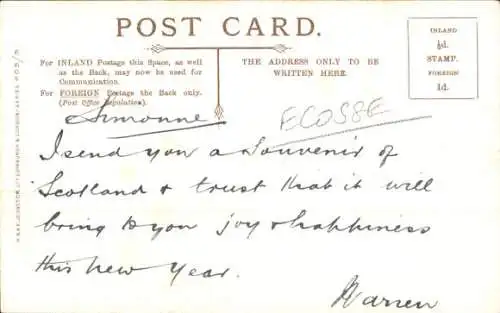 POST CARD.
For INLAND Postage this Space, as well
as the Back, may now be used for
Communication.
For FOREIGN Postage the Back only.
(Post Office Regulation).
THE ADDRESS ONLY TO BE
WRITTEN HERE.
INLAND
½d.
STAMP.
FOREIGN
1d.
ECOSSE
Simonne
I send you a Souvenir of
Scotland & trust that it will
bring to you joy & happiness
this New Year.
Warren